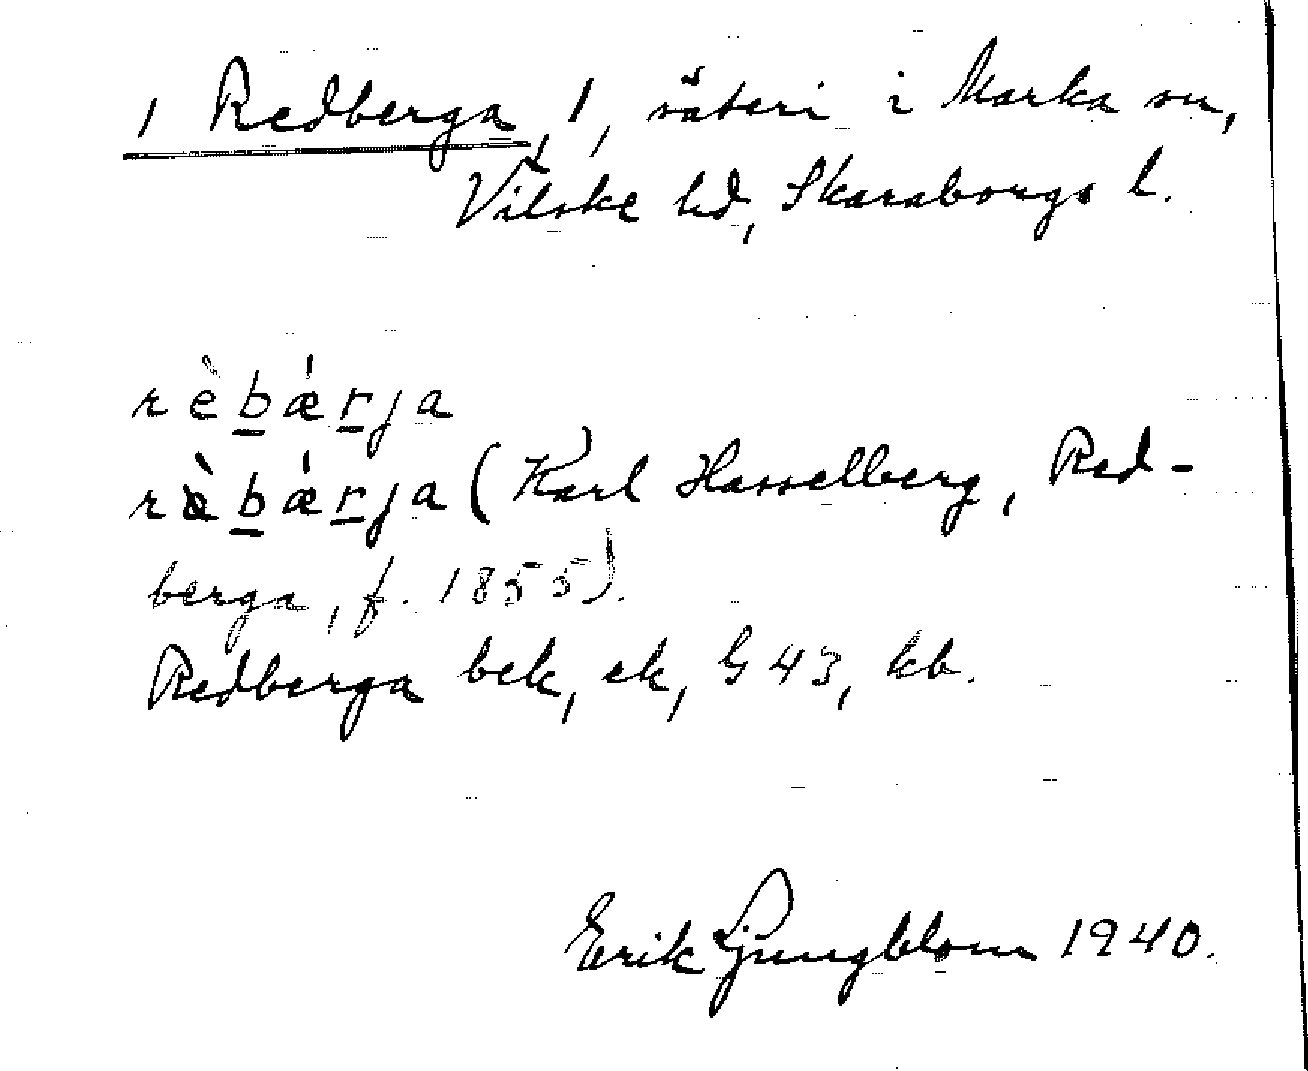 1 Redberga, 1, säteri i Marka sn,
Vilske hd, Skaraborgs l.
rèbǽrja
ræ̀bǽrja (Karl Hasselberg, Red-
berga, f. 1855).
Redberga bek, ek, G 43, kb.
Erik Ljungblom 1940.